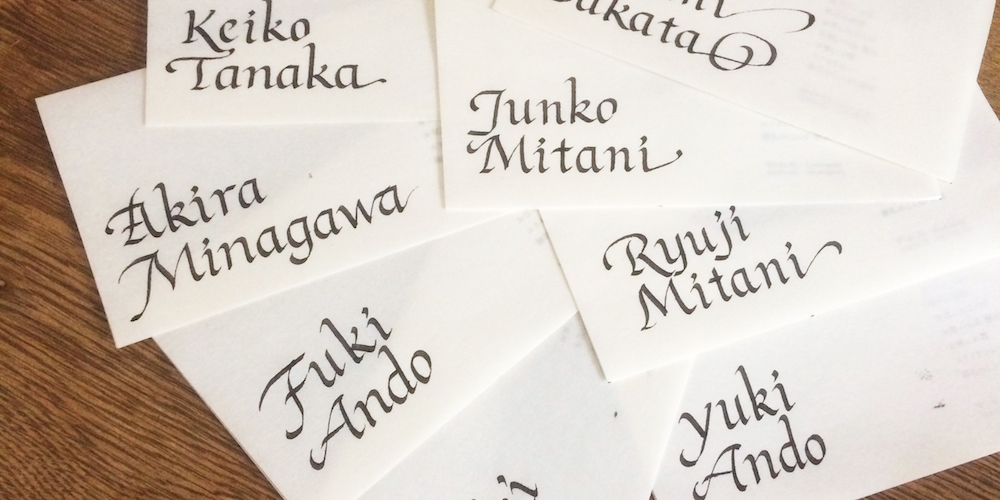 Keiko
Tanaka
Junko
Mitani
Akira
Minagawa
Ryuji
Mitani
Fuki
Ando
yuki
Ando